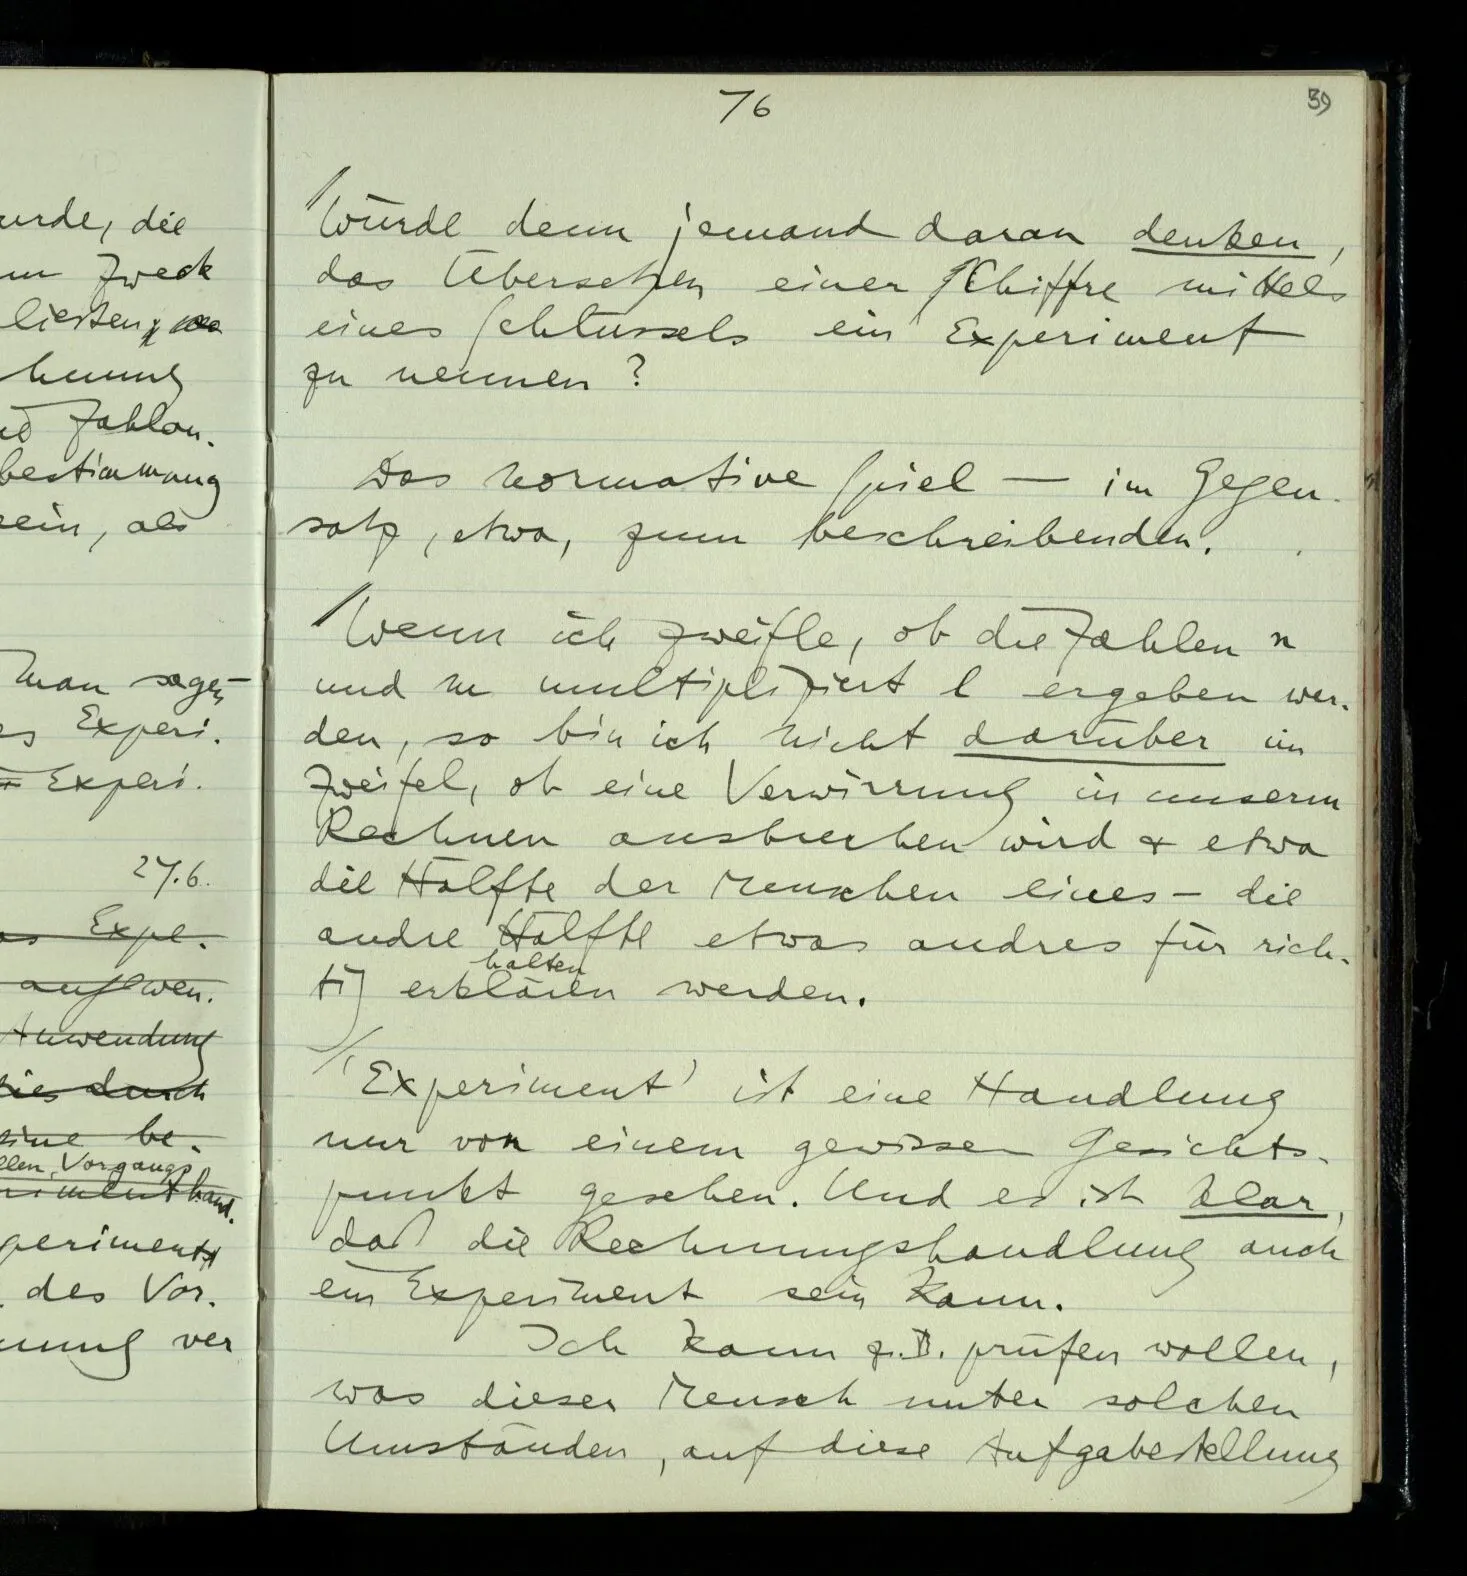 urde, die
m Zweck
ließen
hnung
Zahlen-
bestimmung
sein, als
man sagen
es Experi-
Experi-
27.6.
as Expe-
auf wen-
Anwendung
dies durch
eine be-
llen Vorgangs
rimenthand-
periments
des Vor-
nung ver
76
39
Würde denn jemand daran denken,
das Übersetzen einer Chiffre mittels
eines Schlüssels ein Experiment
zu nennen?
Das normative Spiel — im Gegen-
satz, etwa, zum beschreibenden.
Wenn ich zweifle, ob die Zahlen n
und m multipliziert l ergeben wer-
den, so bin ich nicht darüber im
Zweifel, ob eine Verwirrung in unserm
Rechnen ausbrechen wird & etwa
die Hälfte der Menschen eines – die
andre Hälfte etwas andres für rich-
halten
tig erklären werden.
'Experiment' ist eine Handlung
nur von einem gewissen Gesichts-
punkt gesehen. Und es ist klar,
daß die Rechnungshandlung auch
ein Experiment sein kann.
Ich kann z.B. prüfen wollen,
was dieser Mensch unter solchen
Umständen, auf diese Aufgabestellung